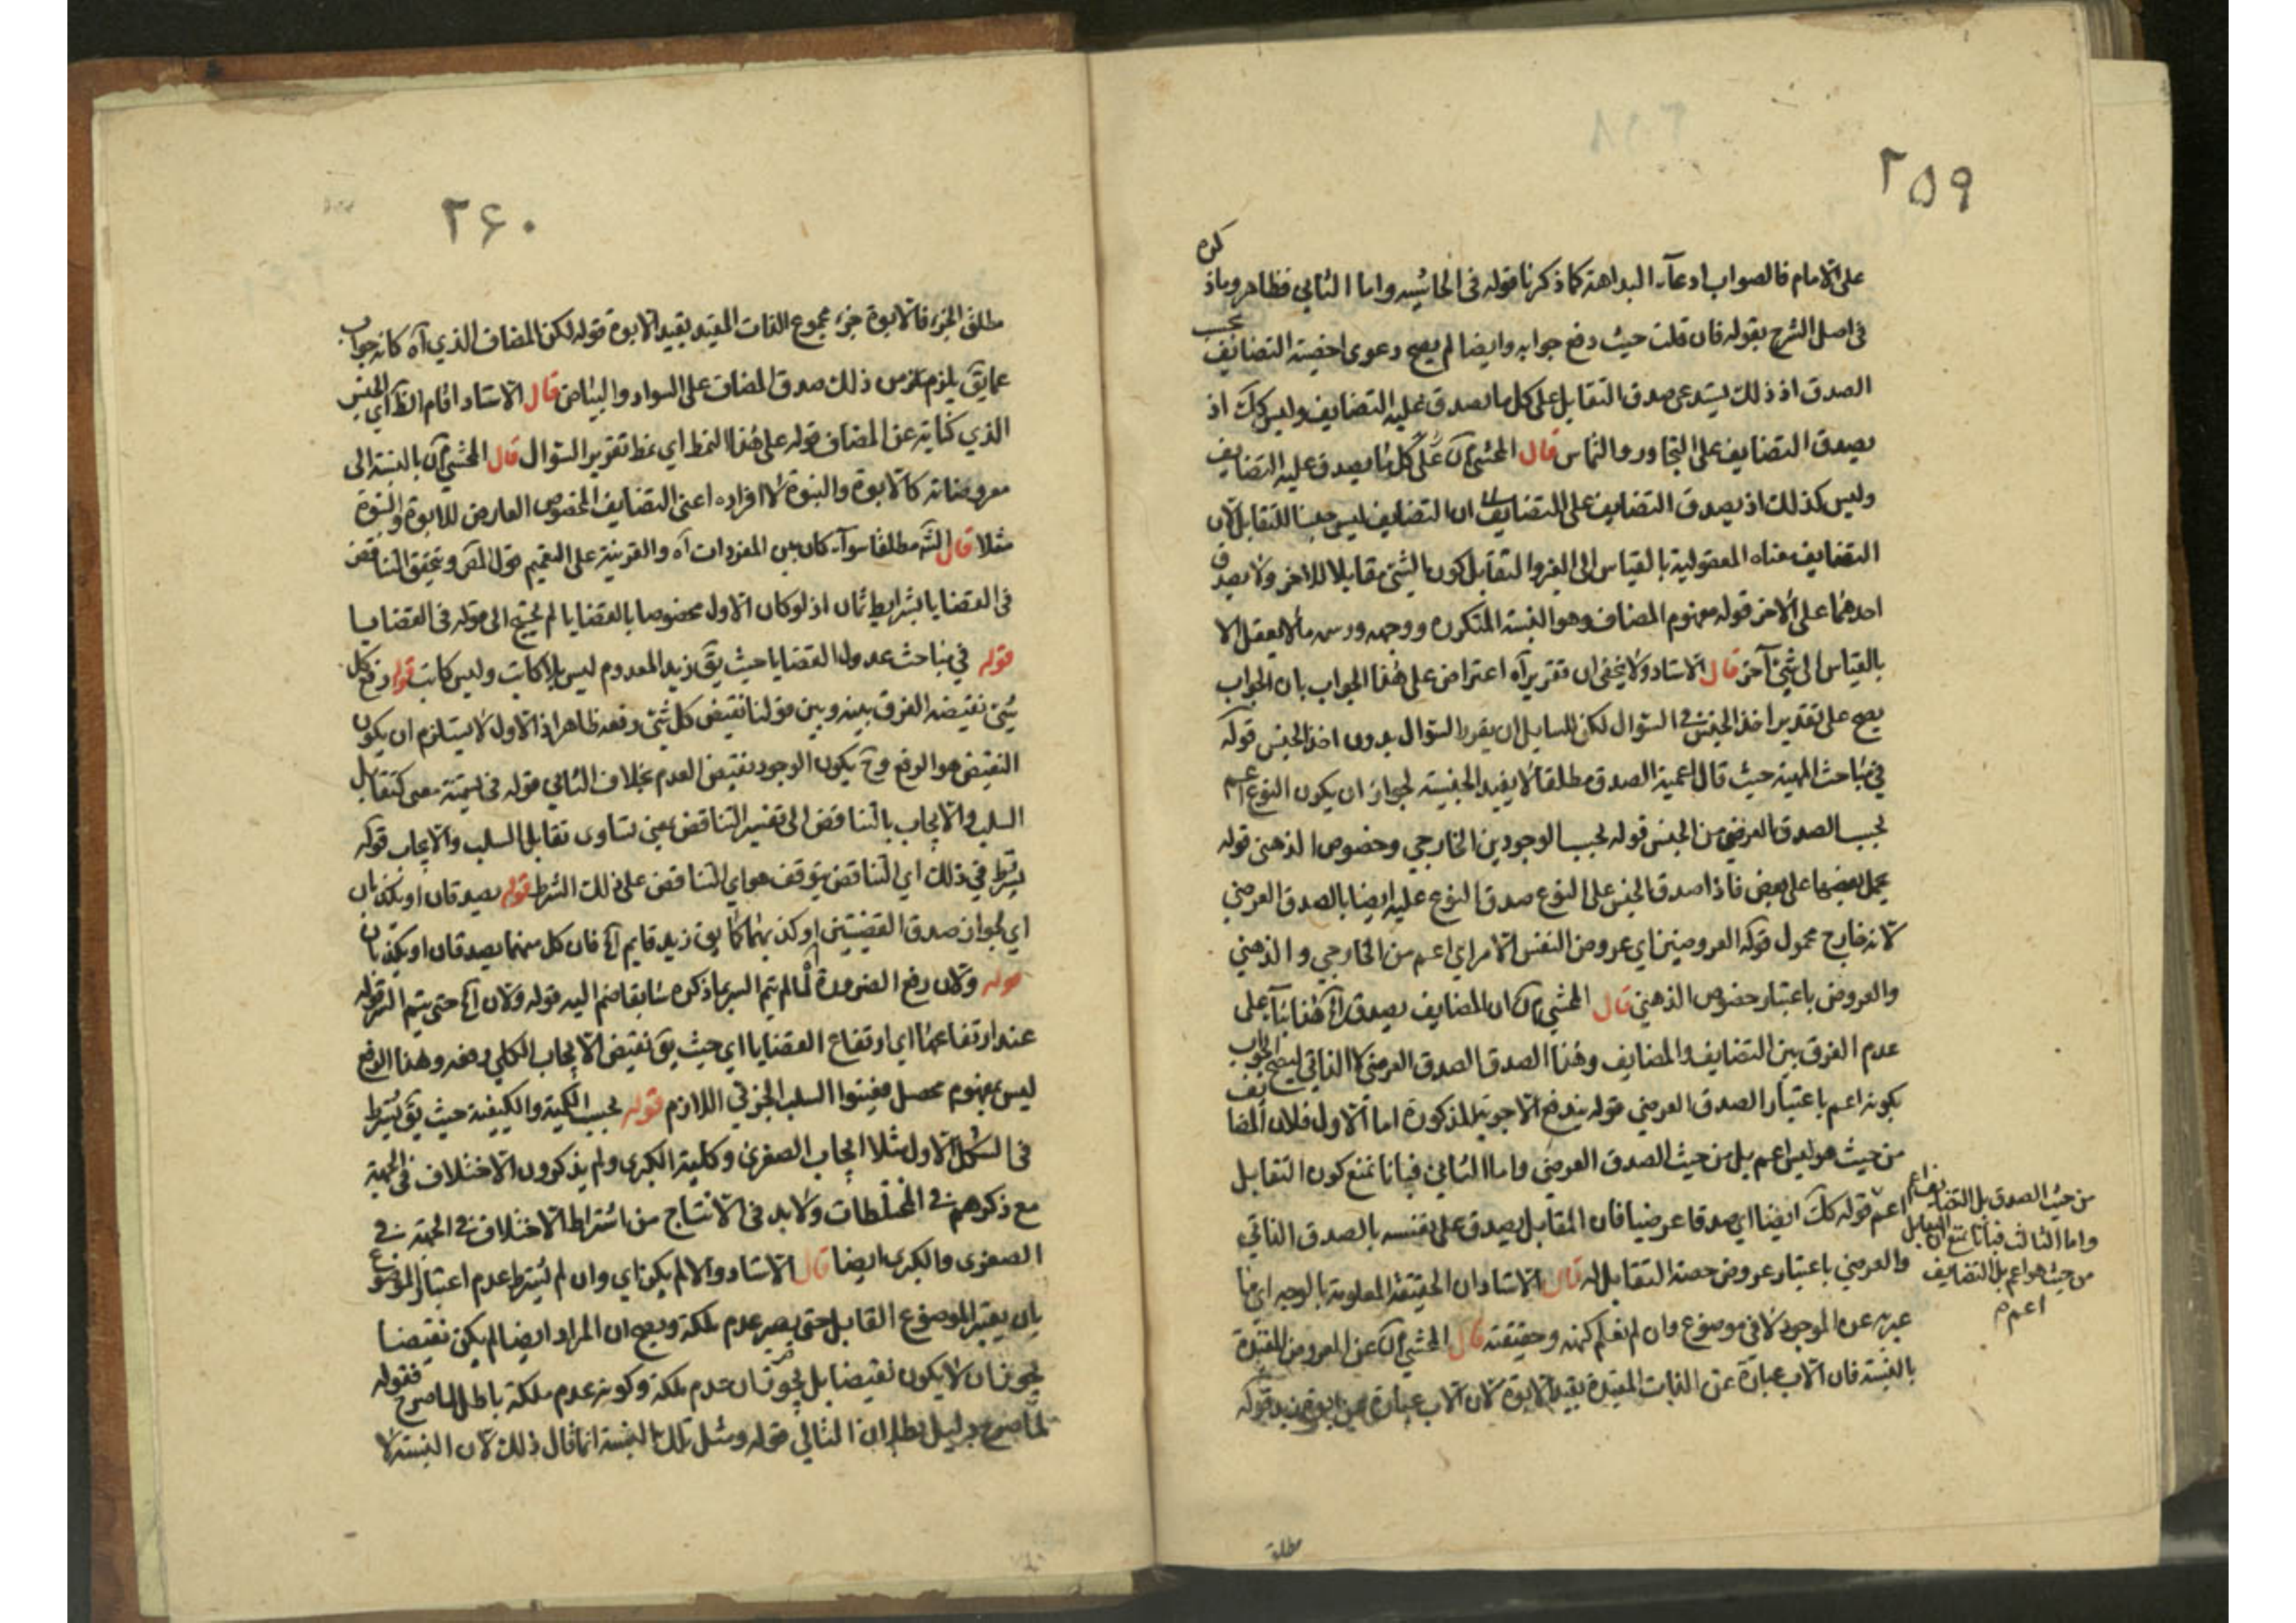 ٢٥٩
على الامام فالصواب ادعاء البداهة كما ذكرنا قوله فى الحاشيه واما الثاني فظاهر وماذكره
فى اصل الشرح بقوله فان قلت حيث دفع جوابه وايضا لم يصح دعوى اخصية التضايف بحسب
الصدق اذ ذلك يستدعى صدق التقابل على كل ما يصدق عليه التضايف وليس كك اذ
يصدق التضايف على التجاور والتماس قال المحشي آن على كل ما يصدق عليه التضايف
وليس كذلك اذ يصدق التضايف على التضايف ان التضايف ليس جنسا للتقابل لان
التضايف معناه المعقولية بالقياس الى الغير والتقابل كون الشئ مقابلا للاخر ولا يصدق
احدهما على الاخر قوله مفهوم المضاف وهو النسبة المتكررة ووجهه ورسمه ما لا يعقل الا
بالقياس الى شئ آخر قال الاستاد ولا يخفى ان تقريره آه اعتراض على هذا الجواب بان الجواب
يصح على تقدير اخذ الجنس في السؤال لكن للسايل ان يقرر السؤال بدون اخذ الجنس قوله
في مباحث المهية حيث قال اعمية الصدق مطلقا لا يفيد الجنسية لجواز ان يكون النوع اعم
بحسب الصدق العرضي من الجنس قوله بحسب الوجودين الخارجي وخصوص الذهنى قوله
يحمل بعضها على بعض فاذا صدق الجنس على النوع صدق النوع عليه ايضا بالصدق العرضي
لانه خارج محمول قوله العروضين اي عروض النفس الامر اي اعم من الخارجي والذهني
والعروض باعتبار خصوص الذهني قال المحشي آن ان المضايف يصدق آه هذا بناء على
عدم الفرق بين التضايف والمضايف وهذا الصدق الصدق العرضي لا الذاتي ليصح الجواب
بكونه اعم باعتبار الصدق العرضي قوله يندفع الاجوبة المذكورة اما الاول فلان المضايف
من حيث هو ليس اعم بل من حيث الصدق العرضي واما الثاني فبانا نمنع كون التقابل
اعم قوله كك ايضا اي صدقا عرضيا فان المقابل يصدق على نفسه بالصدق الذاتي
والعرضي باعتبار عروض حصة التقابل له قال الاستاد ان الحقيقة المعلومة بالوجه اي ما
عبر به عن الموجود لا فى موضوع وان لم نعلم كنهه وحقيقته قال المحشي آن عن المعروض المقيدة
بالنسبة فان الاب عبارة عن الذات المقيدة بقيد الابوة لان الاب عبارة عن قوله
من حيث الصدق بل التضايف اعم
واما الثالث فبانا نمنع ان التقابل
من حيث هو اعم بل التضايف
اعم م
مطلق
٢۶٠
مطلق الجزء فالابوة جزء مجموع الذات المقيد بقيد الابوة قوله لكن المضاف الذي آه كانه جواب
عما يق يلزم من ذلك صدق المضاف على السواد والبياض قال الاستاد اقام الظ اي الجنس
الذي كناية عن المضاف قوله على هذا النمط اي نمط تقرير السؤال قال المحشي آن بالنسبة الى
معروضاته كالابوة والبنوة لا افراده اعنى التضايف المخصوص العارض للابوة والبنوة
مثلا قال الش مطلقا سواء كان بين المفردات آه والقرينة على التعميم قول المص وتحقق التناقض
فى القضايا بشرايط ثمان اذ لو كان الاول مخصوصا بالقضايا لم يحتج الى قوله فى القضايا
قوله في مباحث عدول القضايا حيث يق زيد المعدوم ليس بلا كاتب وليس كاتب قوله رفع كل
شئ نقيضه الفرق بينه وبين قولنا نقيض كل شئ رفعه ظاهر اذ الاول لا يستلزم ان يكون
النقيض هو الرفع وح يكون الوجود نقيض العدم بخلاف الثاني قوله فى تسمية معنى كتقابل
السلب والايجاب بالتناقض الى تفسير التناقض بمعنى تساوى تقابل السلب والايجاب قوله
يشترط في ذلك اي التناقض يتوقف هو اي التناقض على ذلك الشرط قوله يصدقان او يكذبان
اي لجواز صدق القضيتين او كذبهما كما يق زيد قايم آه فان كل منهما يصدقان او يكذبان
قوله ولان رفع الضرورة لما لم يتم السر بما ذكره سابقا ضم اليه قوله ولان آه حتى يتم السر قوله
عند ارتفاعها اي ارتفاع القضايا اي حيث يق نقيض الايجاب الكلي رفعه وهذا الرفع
ليس بمفهوم محصل فعينوا السلب الجزئي اللازم قوله بحسب الكمية والكيفية حيث يق يشترط
فى الشكل الاول مثلا ايجاب الصغرى وكلية الكبرى ولم يذكرون الاختلاف فى الجهة
مع ذكرهم في المختلطات ولابد فى الانتاج من اشتراط الاختلاف في الجهة في
الصغرى والكبرى ايضا قال الاستاد والا لم يكن اي وان لم يشترط عدم اعتبار الموضوع
بان يعتبر الموضوع القابل حتى يصير عدم ملكة ويصح ان المراد ايضا لم يكن نقيضا
يجوز ان لا يكون نقيضا بل يجوز ان عدم ملكة وكونه عدم ملكة باطل لما صرح فقوله
لما صرح دليل بطلان التالي قوله ومثل تلك النسبة انما قال ذلك لان النسبة لا